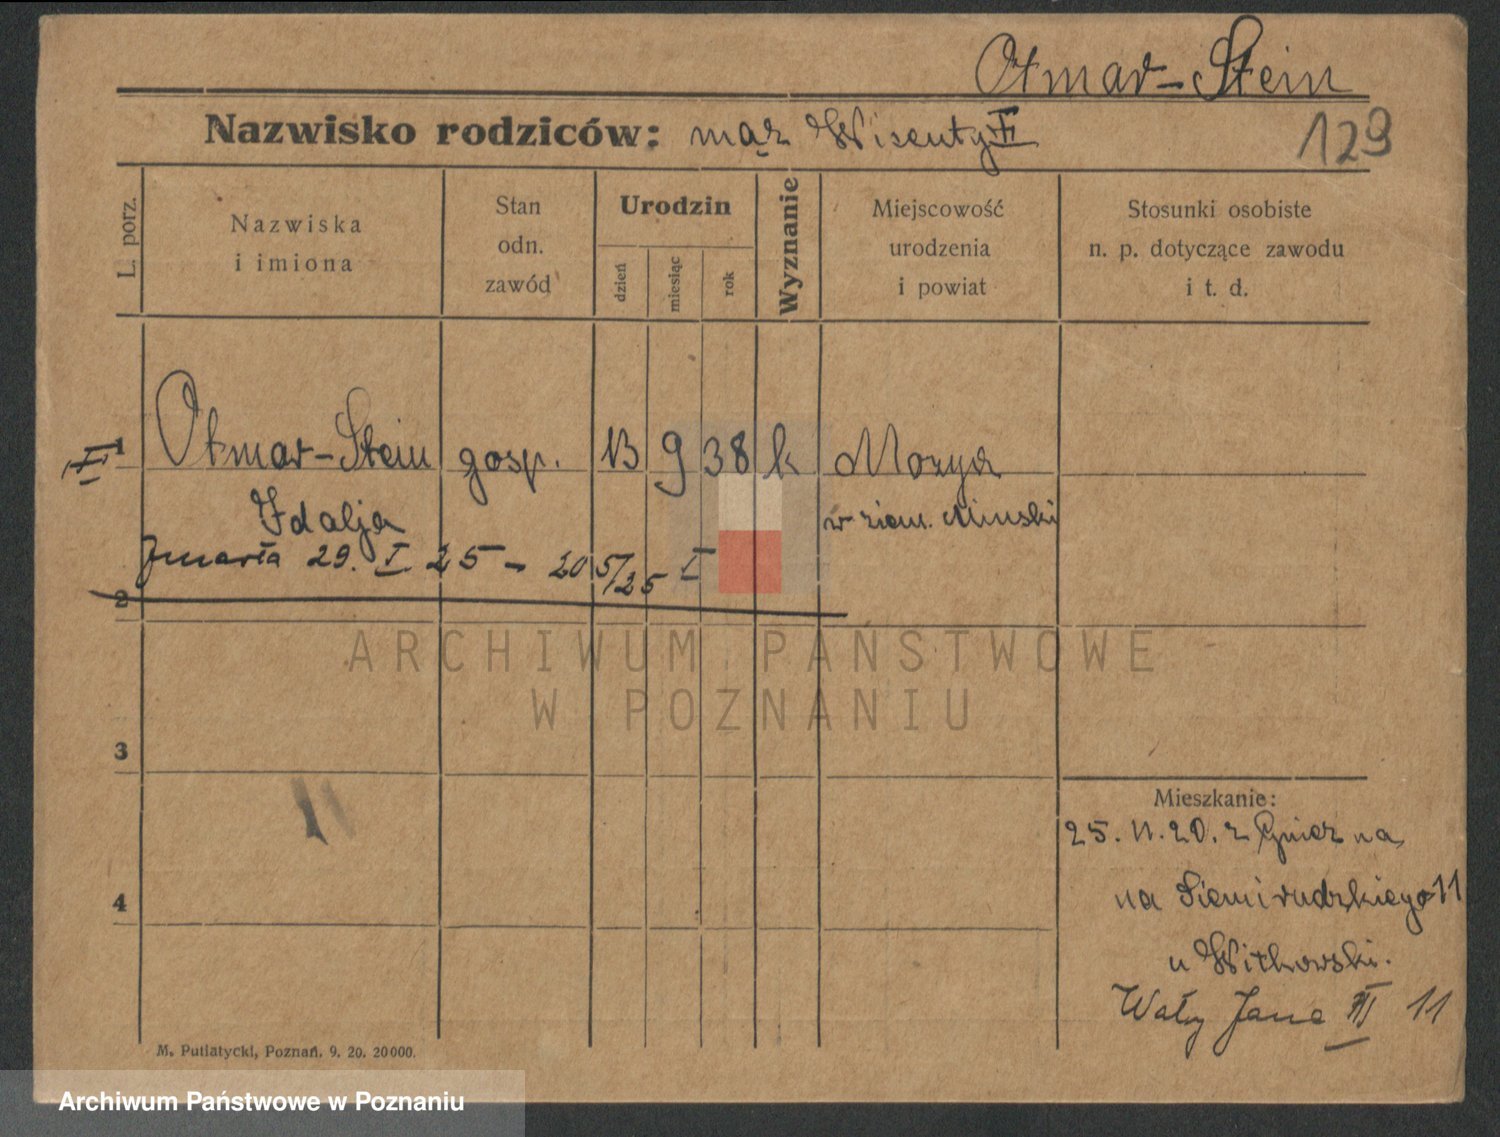 Otmar-Stein
Nazwisko rodziców: mąż Wisenty †
129
L. porz.
Nazwiska
i imiona
Stan
odn.
zawód
Urodzin
dzień
miesiąc
rok
Wyznanie
Miejscowość
urodzenia
i powiat
Stosunki osobiste
n. p. dotyczące zawodu
i t. d.
1
Otmar-Stein gosp. 13 9 38 k Mozyr
Idalja w ziem. Minski
Zmarła 29. I. 25 - 205/25 I
2
3
4
Mieszkanie:
25. 11. 20. z Gniezna
na Siemiradzkiego 11
u Witkowski.
Wały Jana III 11
M. Putiatycki, Poznań. 9. 20. 20000.
ARCHIWUM PAŃSTWOWE
W POZNANIU
Archiwum Państwowe w Poznaniu